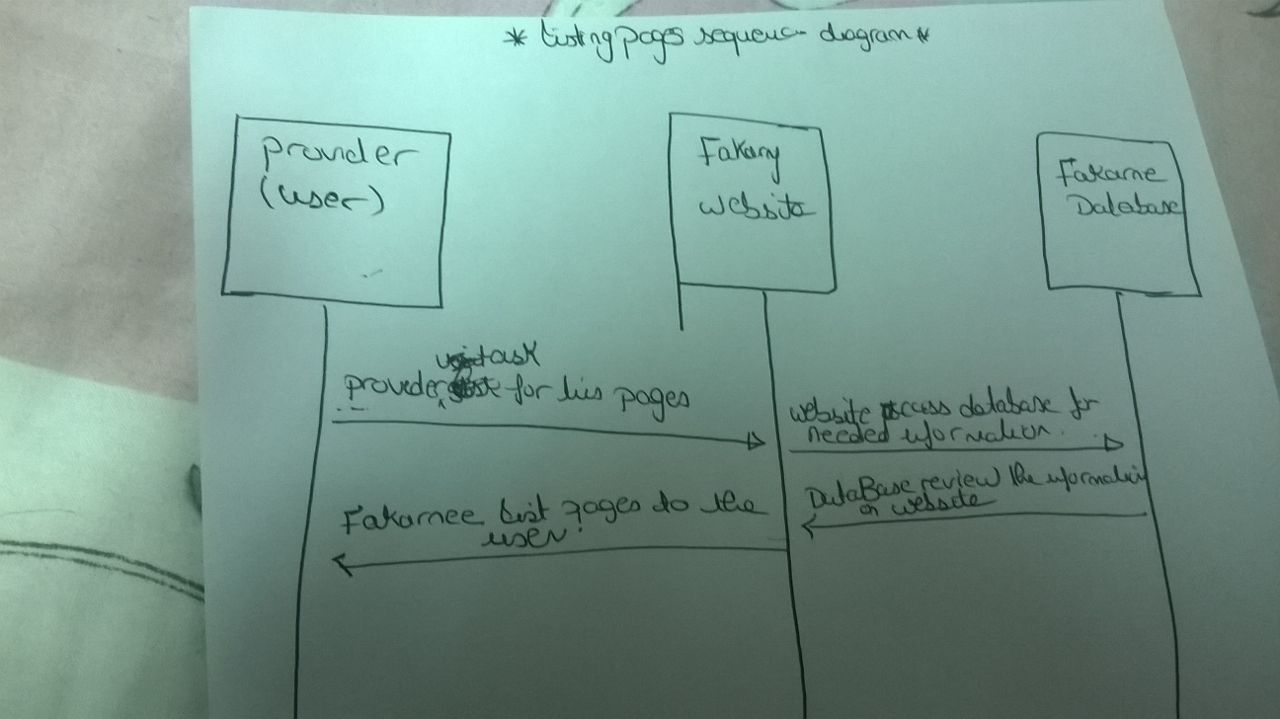 * Listing pages sequence diagram *
Provider
(user)
Fakarny
website
Fakarne
Database
ask
provider for his pages
website access database for
needed information.
DataBase review the information
on website
Fakarnee list pages to the
user.